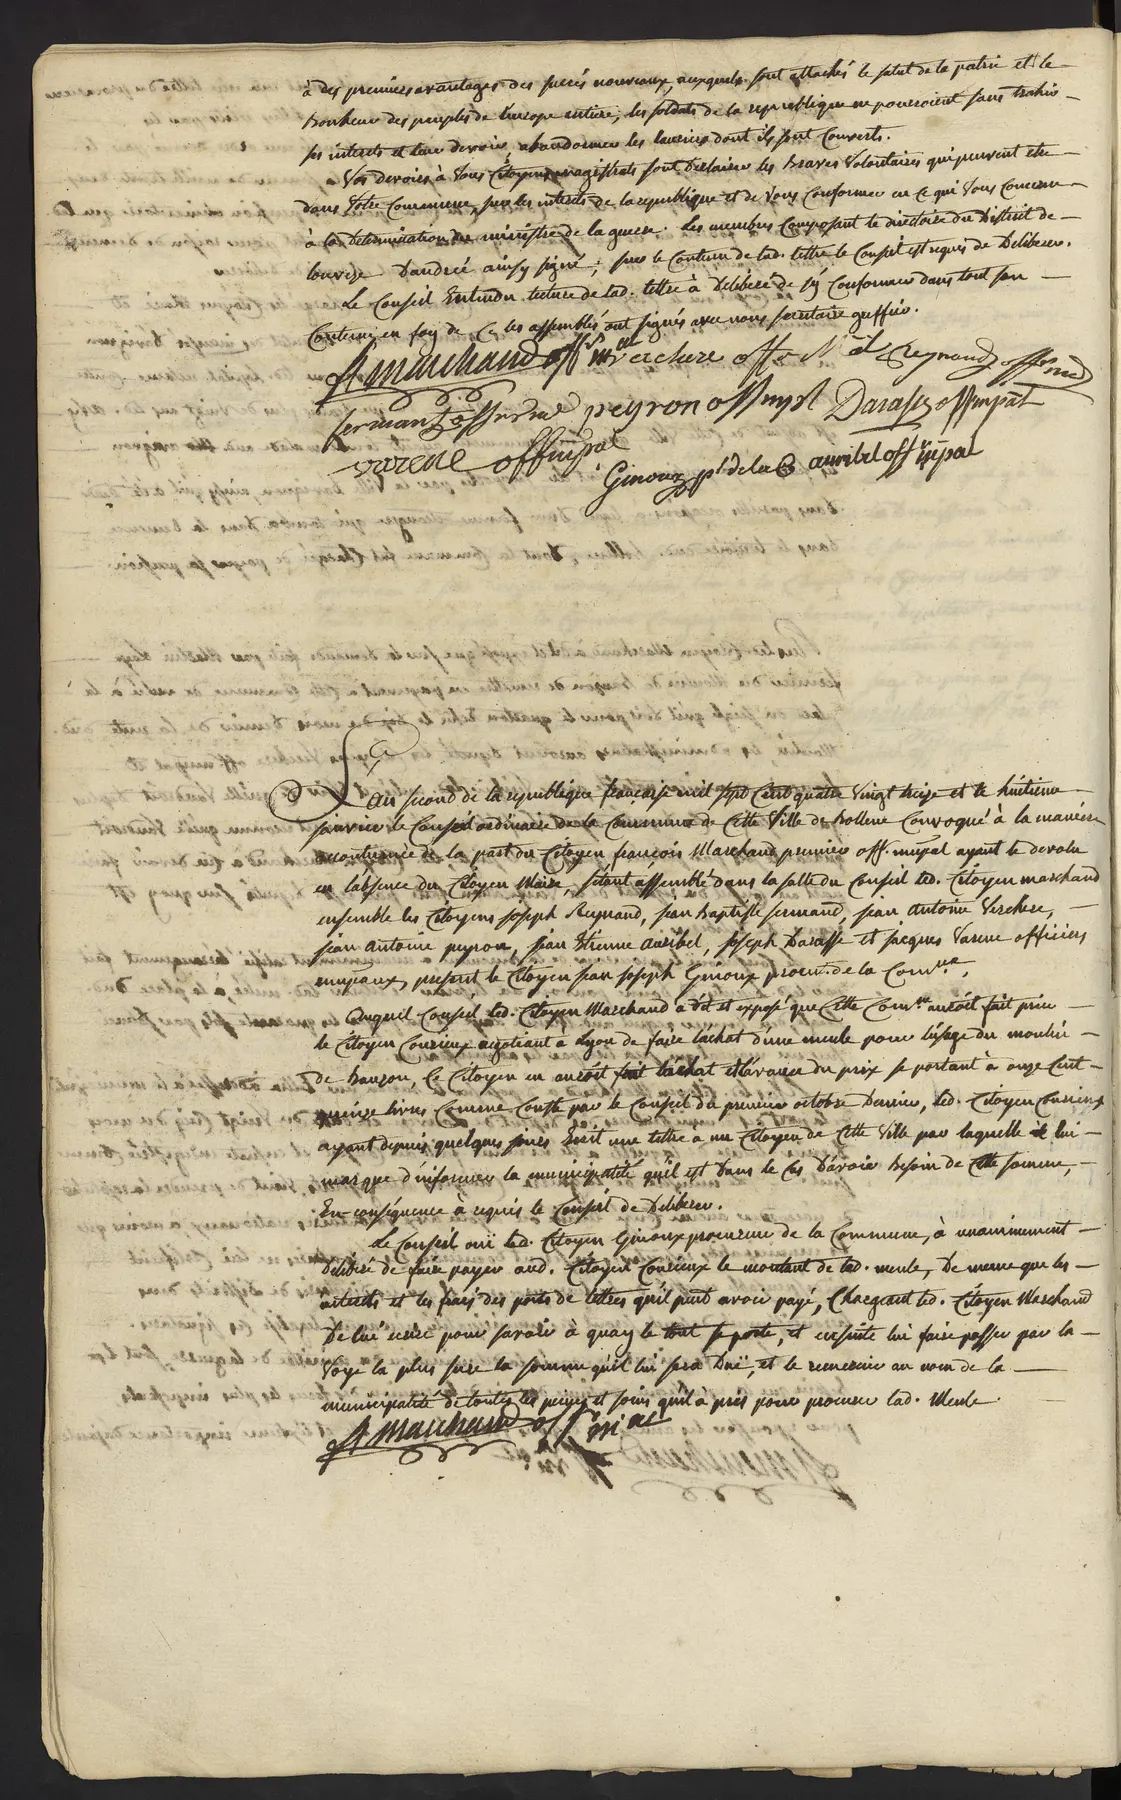 à des premiers avantages des succés nouveaux, auxquels sont attachés le salut de la patrie et le
bonheur des peuples de l'europe entiere, les soldats de la republique ne pourroient sans trahir
ses interets et leur devoir, abandonner les lauriers dont ils sont Couverts.
Vos devoirs à Vous Citoyens magistrats sont D'eclairer les braves Volontaires qui peuvent etre
dans Votre Commune, sur les interets de la republique et de Vous Conformer en ce qui Vous Concerne
à la Determination du ministre de la guerre. Les membres Composant le directoire du District de
louveze Dandreé ainsy signé; sur le Contenu de lad. lettre le Conseil est requis de Deliberer.
Le Conseil Entendu lecture de lad. lettre à Deliberé de s'y Conformer dans tout son
Contenu, en foy de Ce les assemblés ont signés avec nous secretaire greffier.
A marchand off. mal Verchere off. M. al Reynaud off mal
sermand off. mal peyron off mpl Darasse off mpal
varene off mpal
Ginoux pr. de la C auribel off mpal
L'an second de la republique française mil sept Cent quatre Vingt treize et le huitieme
janvier le Conseil ordinaire de la Commune de Cette Ville de Bollene Convoqué à la maniere
accoutumée de la part du Citoyen françois Marchand premier off. mupal ayant le devolu
en labsence du Citoyen Maire, s'etant assemblé dans la salle du Conseil led. Citoyen marchand
ensemble les Citoyens joseph Reynaud, jean Baptiste sermand, jean antoine Verchere,
jean antoine peyron, jean Etienne auribel, joseph Darasse et jacques Varene officiers
mupaux, present le Citoyen jean joseph Ginoux procur. de la Comune,
Auquel Conseil led. Citoyen Marchand a Dit et exposé que Cette Comne auroit fait prier
le Citoyen Courieux negotiant à Lyon de faire l'achat d'une meule pour l'usage du moulin
de bauzon, Ce Citoyen en auroit fait l'achat et l'avance du prix se portant à onze Cent
quinze livres Comme Conste par le Conseil du premier octobre Dernier, led. Citoyen Courieux
ayant depuis quelques jours Ecrit une lettre à un Citoyen de Cette Ville par laquelle il lui
marque d'informer la municipalité qu'il est Dans le Cas D'avoir Besoin de Cette somme,
En conséquence à requis le Conseil de Deliberer.
Le Conseil ouï led. Citoyen Ginoux procureur de la Commune, à unaninement
Deliberé de faire payer aud. Citoyen Courieux le montant de lad. meule, De meme que les
interets et les frais des ports de lettres qu'il peut avoir payé, Chargeant led. Citoyen Marchand
De lui ecrire pour savoir à quoy le tout se porte, et ensuite lui faire passer par la
Voye la plus sure la somme qu'il lui sera Duë, et le remercier au nom de la
municipalité de toutes les peines et soins qu'il à pris pour procurer lad. Meule.
A marchand off. m al